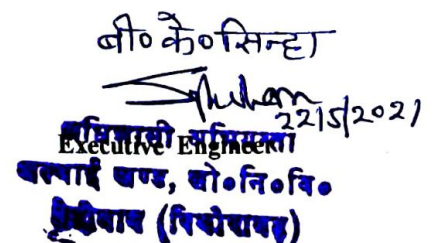 बी० के० सिन्हा
22/5/2021
अधिशासी अभियन्ता
Executive Engineer
अस्थाई खण्ड, लो० नि० वि०
(पिथौरागढ़)